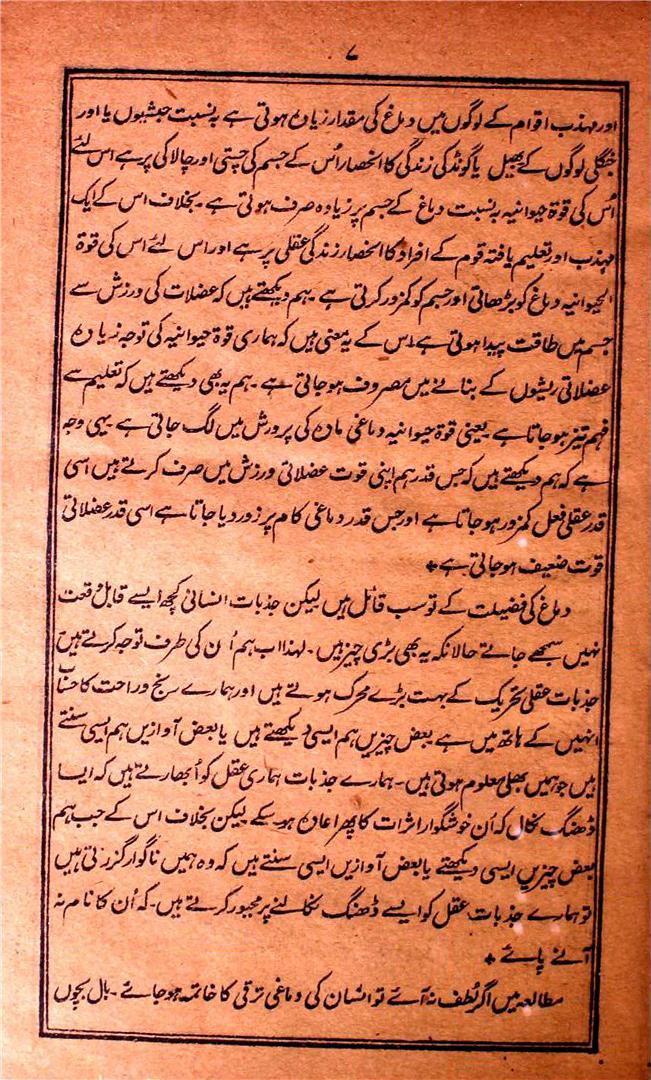 ۷
اور مہذب اقوام کے لوگوں میں دماغ کی مقدار زیادہ ہوتی ہے بہ نسبت حبشیوں یا اور
جنگلی لوگوں کے بھیل یا گونڈ کی زندگی کا انحصار اُس کے جسم کی چستی اور چالاکی پر ہے اس لئے
اُس کی قوۃ حیوانیہ بہ نسبت دماغ کے جسم پر زیادہ صرف ہوتی ہے۔ بخلاف اس کے ایک
مہذب اور تعلیم یافتہ قوم کے افراد کا انحصار زندگی عقلی پر ہے اور اس لئے اس کی قوۃ
الحیوانیہ دماغ کو بڑھاتی اور جسم کو کمزور کرتی ہے۔ ہم دیکھتے ہیں کہ عضلات کی ورزش سے
جسم میں طاقت پیدا ہوتی ہے اس کے یہ معنی ہیں کہ ہماری قوۃ حیوانیہ کی توجہ زیادہ
عضلاتی ریشوں کے بنانے میں مصروف ہو جاتی ہے۔ ہم یہ بھی دیکھتے ہیں کہ تعلیم سے
فہم تیز ہو جاتا ہے۔ یعنی قوۃ حیوانیہ دماغی مادہ کی پرورش میں لگ جاتی ہے۔ یہی وجہ
ہے کہ ہم دیکھتے ہیں کہ جس قدر ہم اپنی قوت عضلاتی ورزش میں صرف کرتے ہیں اسی
قدر عقلی فعل کمزور ہو جاتا ہے اور جس قدر دماغی کام پر زور دیا جاتا ہے اسی قدر عضلاتی
قوت ضعیف ہو جاتی ہے +
دماغ کی فضیلت کے تو سب قائل ہیں لیکن جذبات انسانی کچھ ایسے قابل وقعت
نہیں سمجھے جاتے حالانکہ یہ بھی بڑی چیز ہیں۔ لہذا اب ہم اُن کی طرف توجہ کرتے ہیں
جذبات عقلی تحریک کے بہت بڑے محرک ہوتے ہیں اور ہمارے رنج و راحت کا حساب
انہیں کے ہاتھ میں ہے بعض چیزیں ہم ایسی دیکھتے ہیں یا بعض آوازیں ہم ایسی سنتے
ہیں جو ہمیں بھلی معلوم ہوتی ہیں۔ ہمارے جذبات ہماری عقل کو اُبھارتے ہیں کہ ایسا
ڈھنگ نکال کہ اُن خوشگوار اثرات کا پھر اعادہ ہو سکے لیکن بخلاف اس کے جب ہم
بعض چیزیں ایسی دیکھتے یا بعض آوازیں ایسی سنتے ہیں کہ وہ ہمیں ناگوار گزرتی ہیں
تو ہمارے جذبات عقل کو ایسے ڈھنگ نکالنے پر مجبور کرتے ہیں۔ کہ اُن کا نام نہ
آنے پائے +
مطالعہ میں اگر لُطف نہ آئے تو انسان کی دماغی ترقی کا خاتمہ ہو جائے۔ بال بچوں